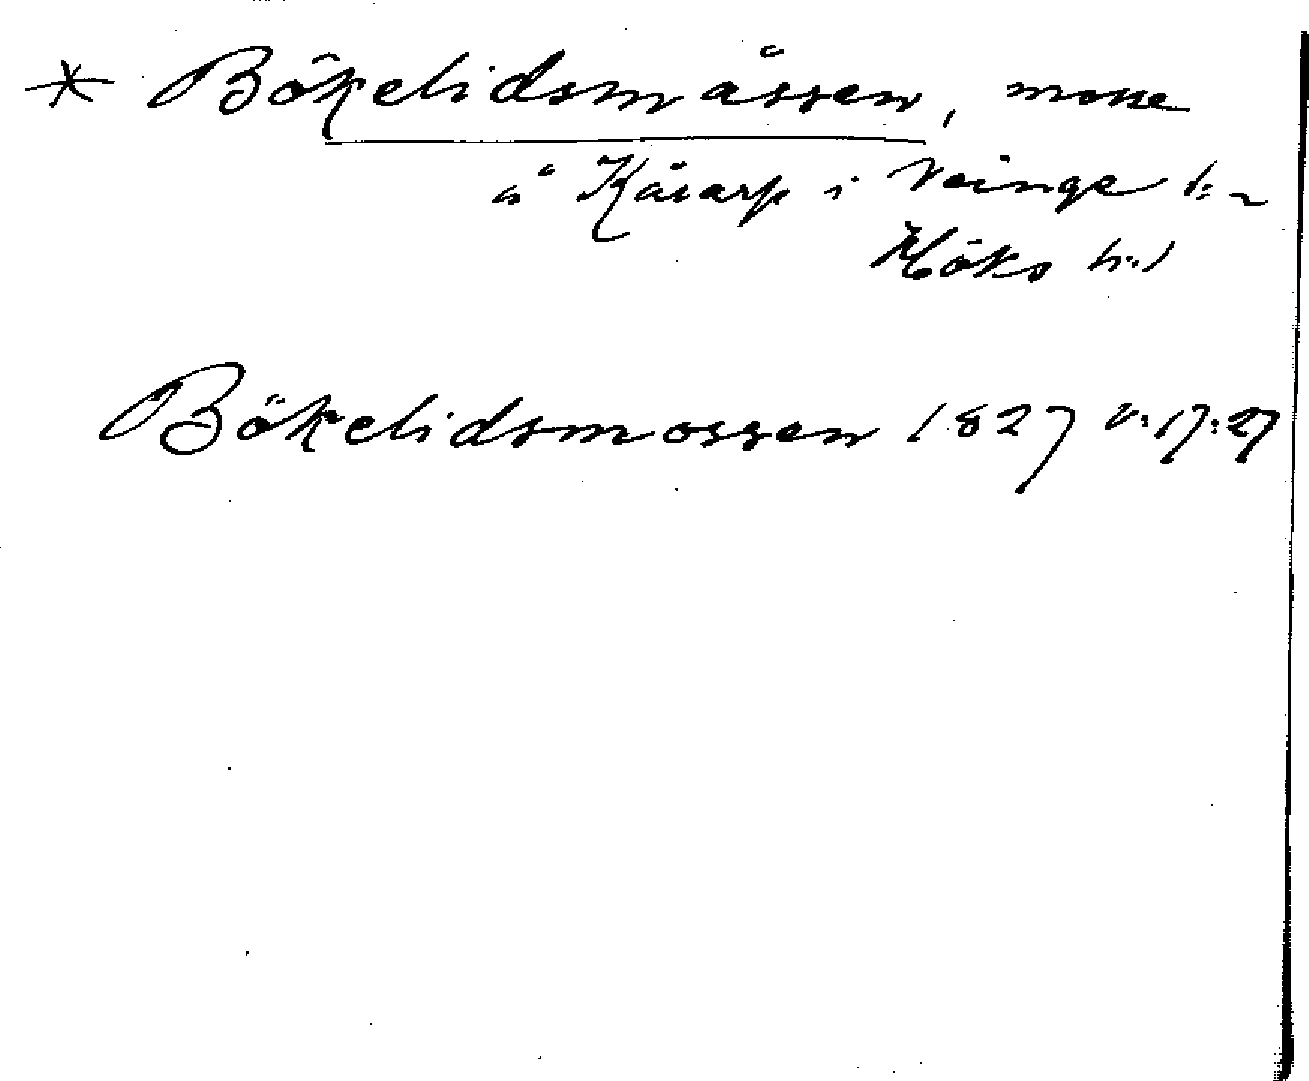 * Bökelidsmåssen, mosse
å Kåarp i Veinge s:n
Höks h:d
Bökelidsmossen 1827 V:17:27